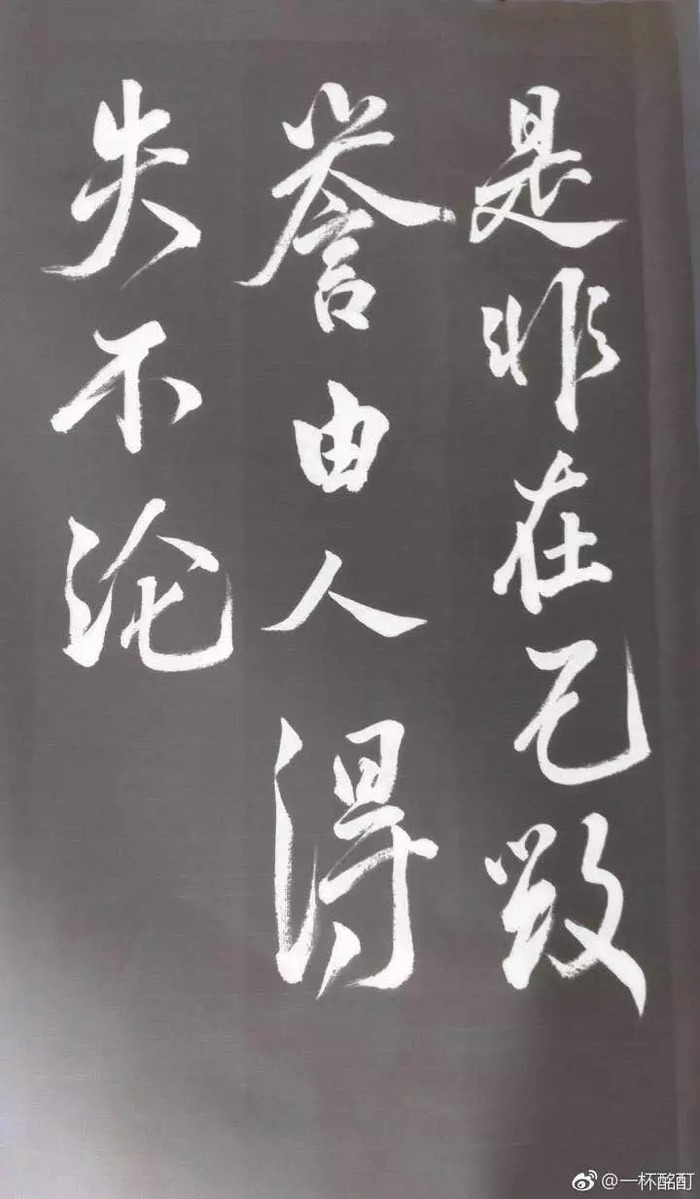 是非在己毁
誉由人得
失不论
@一杯酩酊